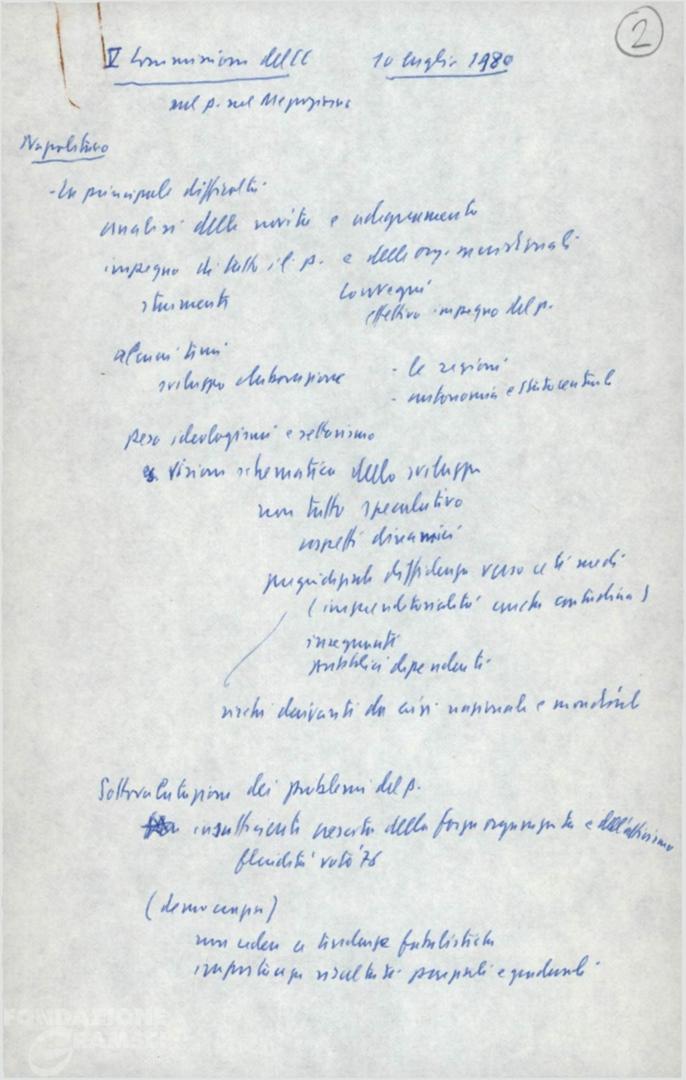 2
V Commissione del CC 10 luglio 1980
sul p. nel Mezzogiorno
Napolitano
- La principale difficoltà
analisi delle novità e adeguamento
impegno di tutto il p. e delle org. meridionali
strumenti convegni
effettivo impegno del p.
alcuni temi
sviluppo elaborazione - le regioni
- autonomia e Stato centrale
peso ideologismi e settarismo
es. visione schematica dello sviluppo
non tutto speculativo
aspetti dinamici
pregiudiziale diffidenza verso ceti medi
(imprenditorialità anche contadina)
insegnanti
pubblici dipendenti
rischi derivanti da crisi nazionale e mondiale
Sottovalutazione dei problemi del p.
insufficiente crescita della forza organizzata e dell'attivismo
fluidità voto '76
(democrazia)
non cedere a tendenze fatalistiche
importanza risultati parziali e graduali
FONDAZIONE
GRAMSCI